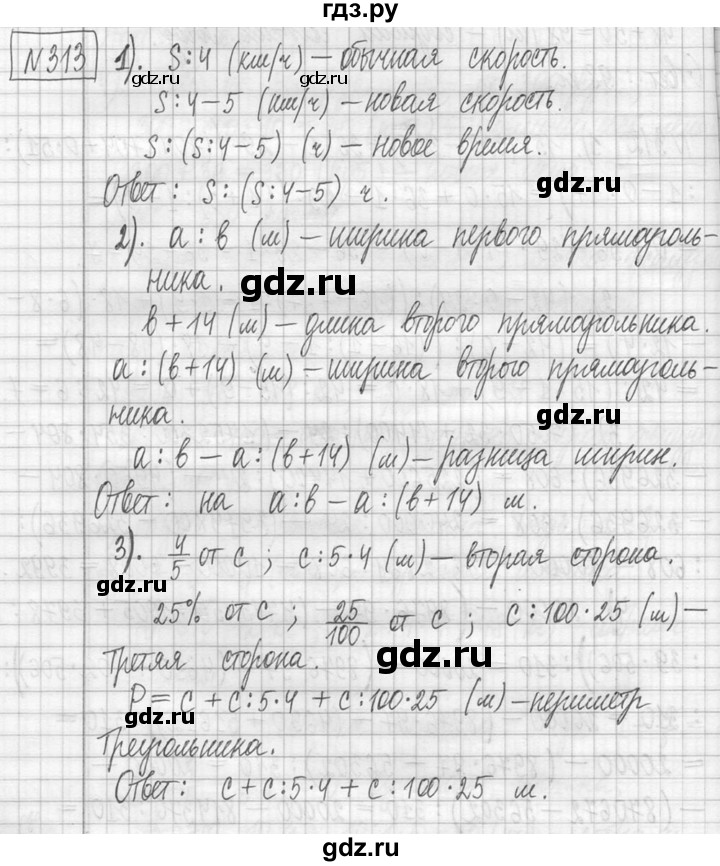 гдз.ру
№313 1). S:4 (км/ч) – обычная скорость.
gdz.ru gdz.ru
S:4-5 (км/ч) – новая скорость.
S:(S:4-5) (ч) – новое время.
Ответ: S:(S:4-5) ч. gdz.ru
2). а:в (м) – ширина первого прямоуголь-
ника. gdz.ru
в+14 (м) – длина второго прямоугольника.
а:(в+14) (м) – ширина второго прямоуголь-
ника. gdz.ru
а:в – а:(в+14) (м) – разница ширин.
Ответ: на а:в – а:(в+14) м.
3). 4/5 от с; с:5·4 (м) – вторая сторона.
gdz.ru
25% от с; 25/100 от с; с:100·25 (м) –
третяя сторона. gdz.ru
Р = с + с:5·4 + с:100·25 (м) – периметр
gdz.ru
треугольника.
Ответ: с + с:5·4 + с:100·25 м.
gdz.ru gdz.ru